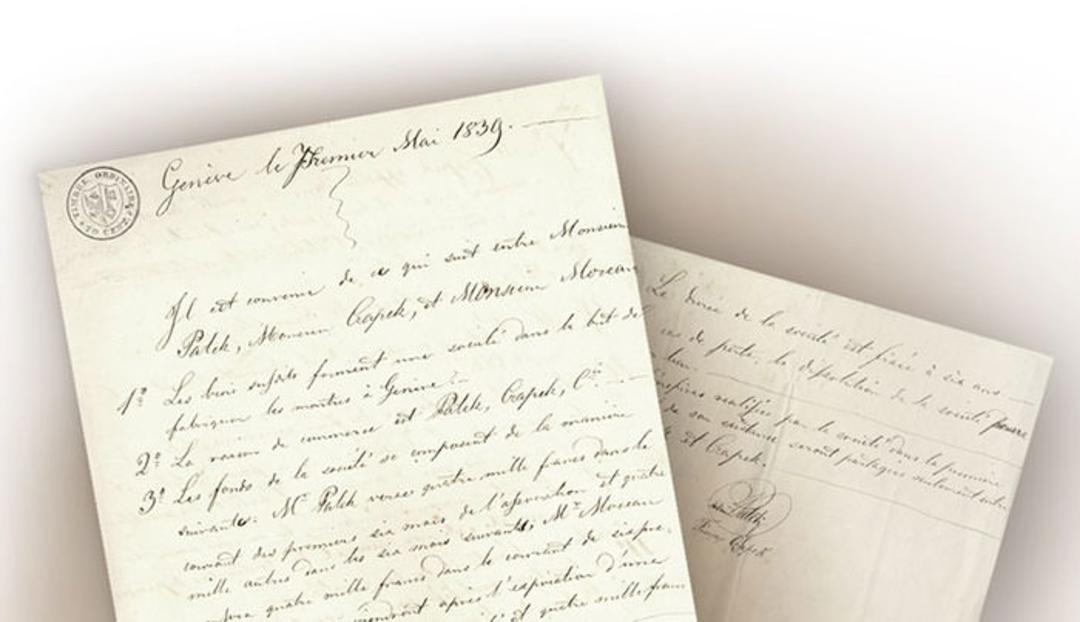 Genève le Premier Mai 1839.
TIMBRE ORDINAIRE
Il est convenu de ce qui suit entre Monsieur
Patek, Monsieur Czapek, et Monsieur Moreau
1º Les trois susdits forment une société dans le but de
fabriquer les montres à Genève.
2º La raison de commerce est Patek, Czapek, Cie
3º Les fonds de la société se composent de la manière
suivante: Mr Patek verse quatre mille francs dans le
courant des premiers six mois de l'association et quatre
mille autres dans les six mois suivants; Mr Moreau
quatre mille francs dans le courant de six
après l'expiration d'une
et quatre mille francs
La durée de la société est fixée à six ans
cas de perte, la dissolution de la société pourra
lieu.
réalisés par la société dans la première
de son existence seront partagés seulement entre
et Czapek.
Patek
Czapek